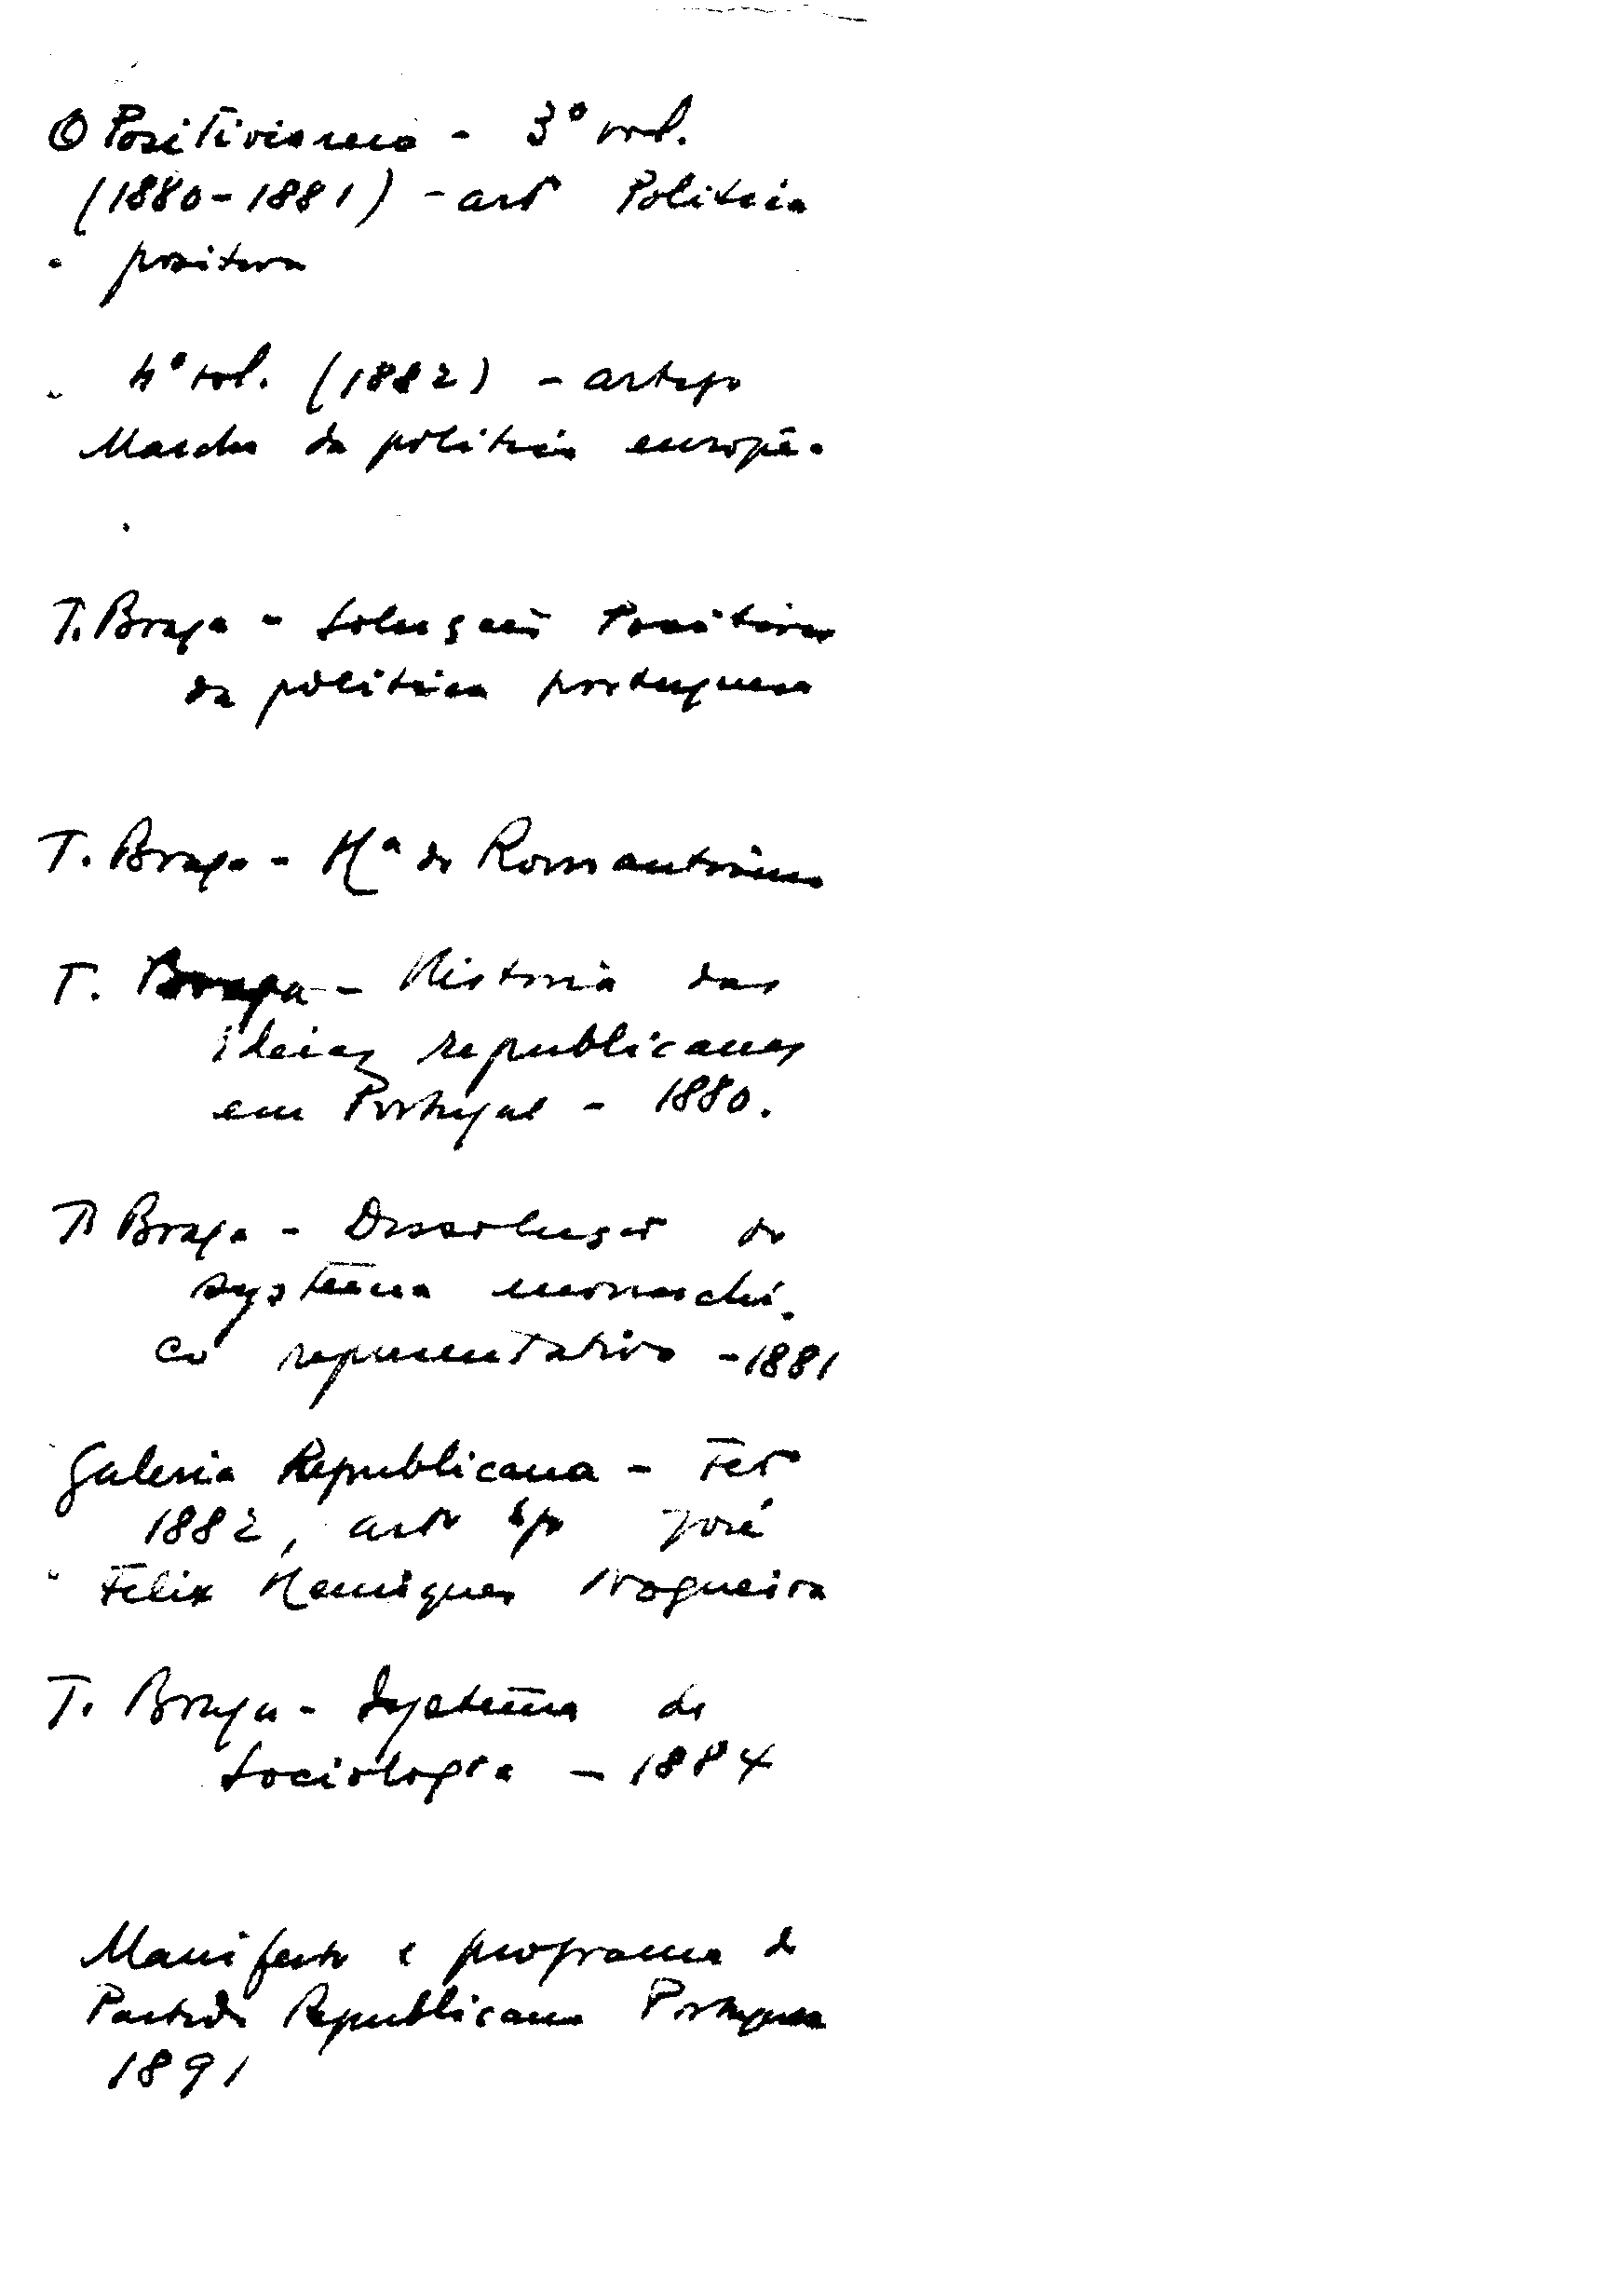 O Positivismo - 3º vol.
(1880-1881) - artº Politica
positiva
4º vol. (1882) - artigo
Marcha da politica europêa
T. Braga - Soluções Positivas
da politica portuguesa
T. Braga - Hª do Romantismo
T. Braga - Historia das
ideias republicanas
em Portugal - 1880.
T. Braga - Dissolução do
systema monarchi-
co representativo - 1881
Galeria Republicana - Fevº
1882, artº José
Felix Henriques Nogueira
T. Braga - Systema de
Sociologia - 1884
Manifesto e programa do
Partido Republicano Português
1891